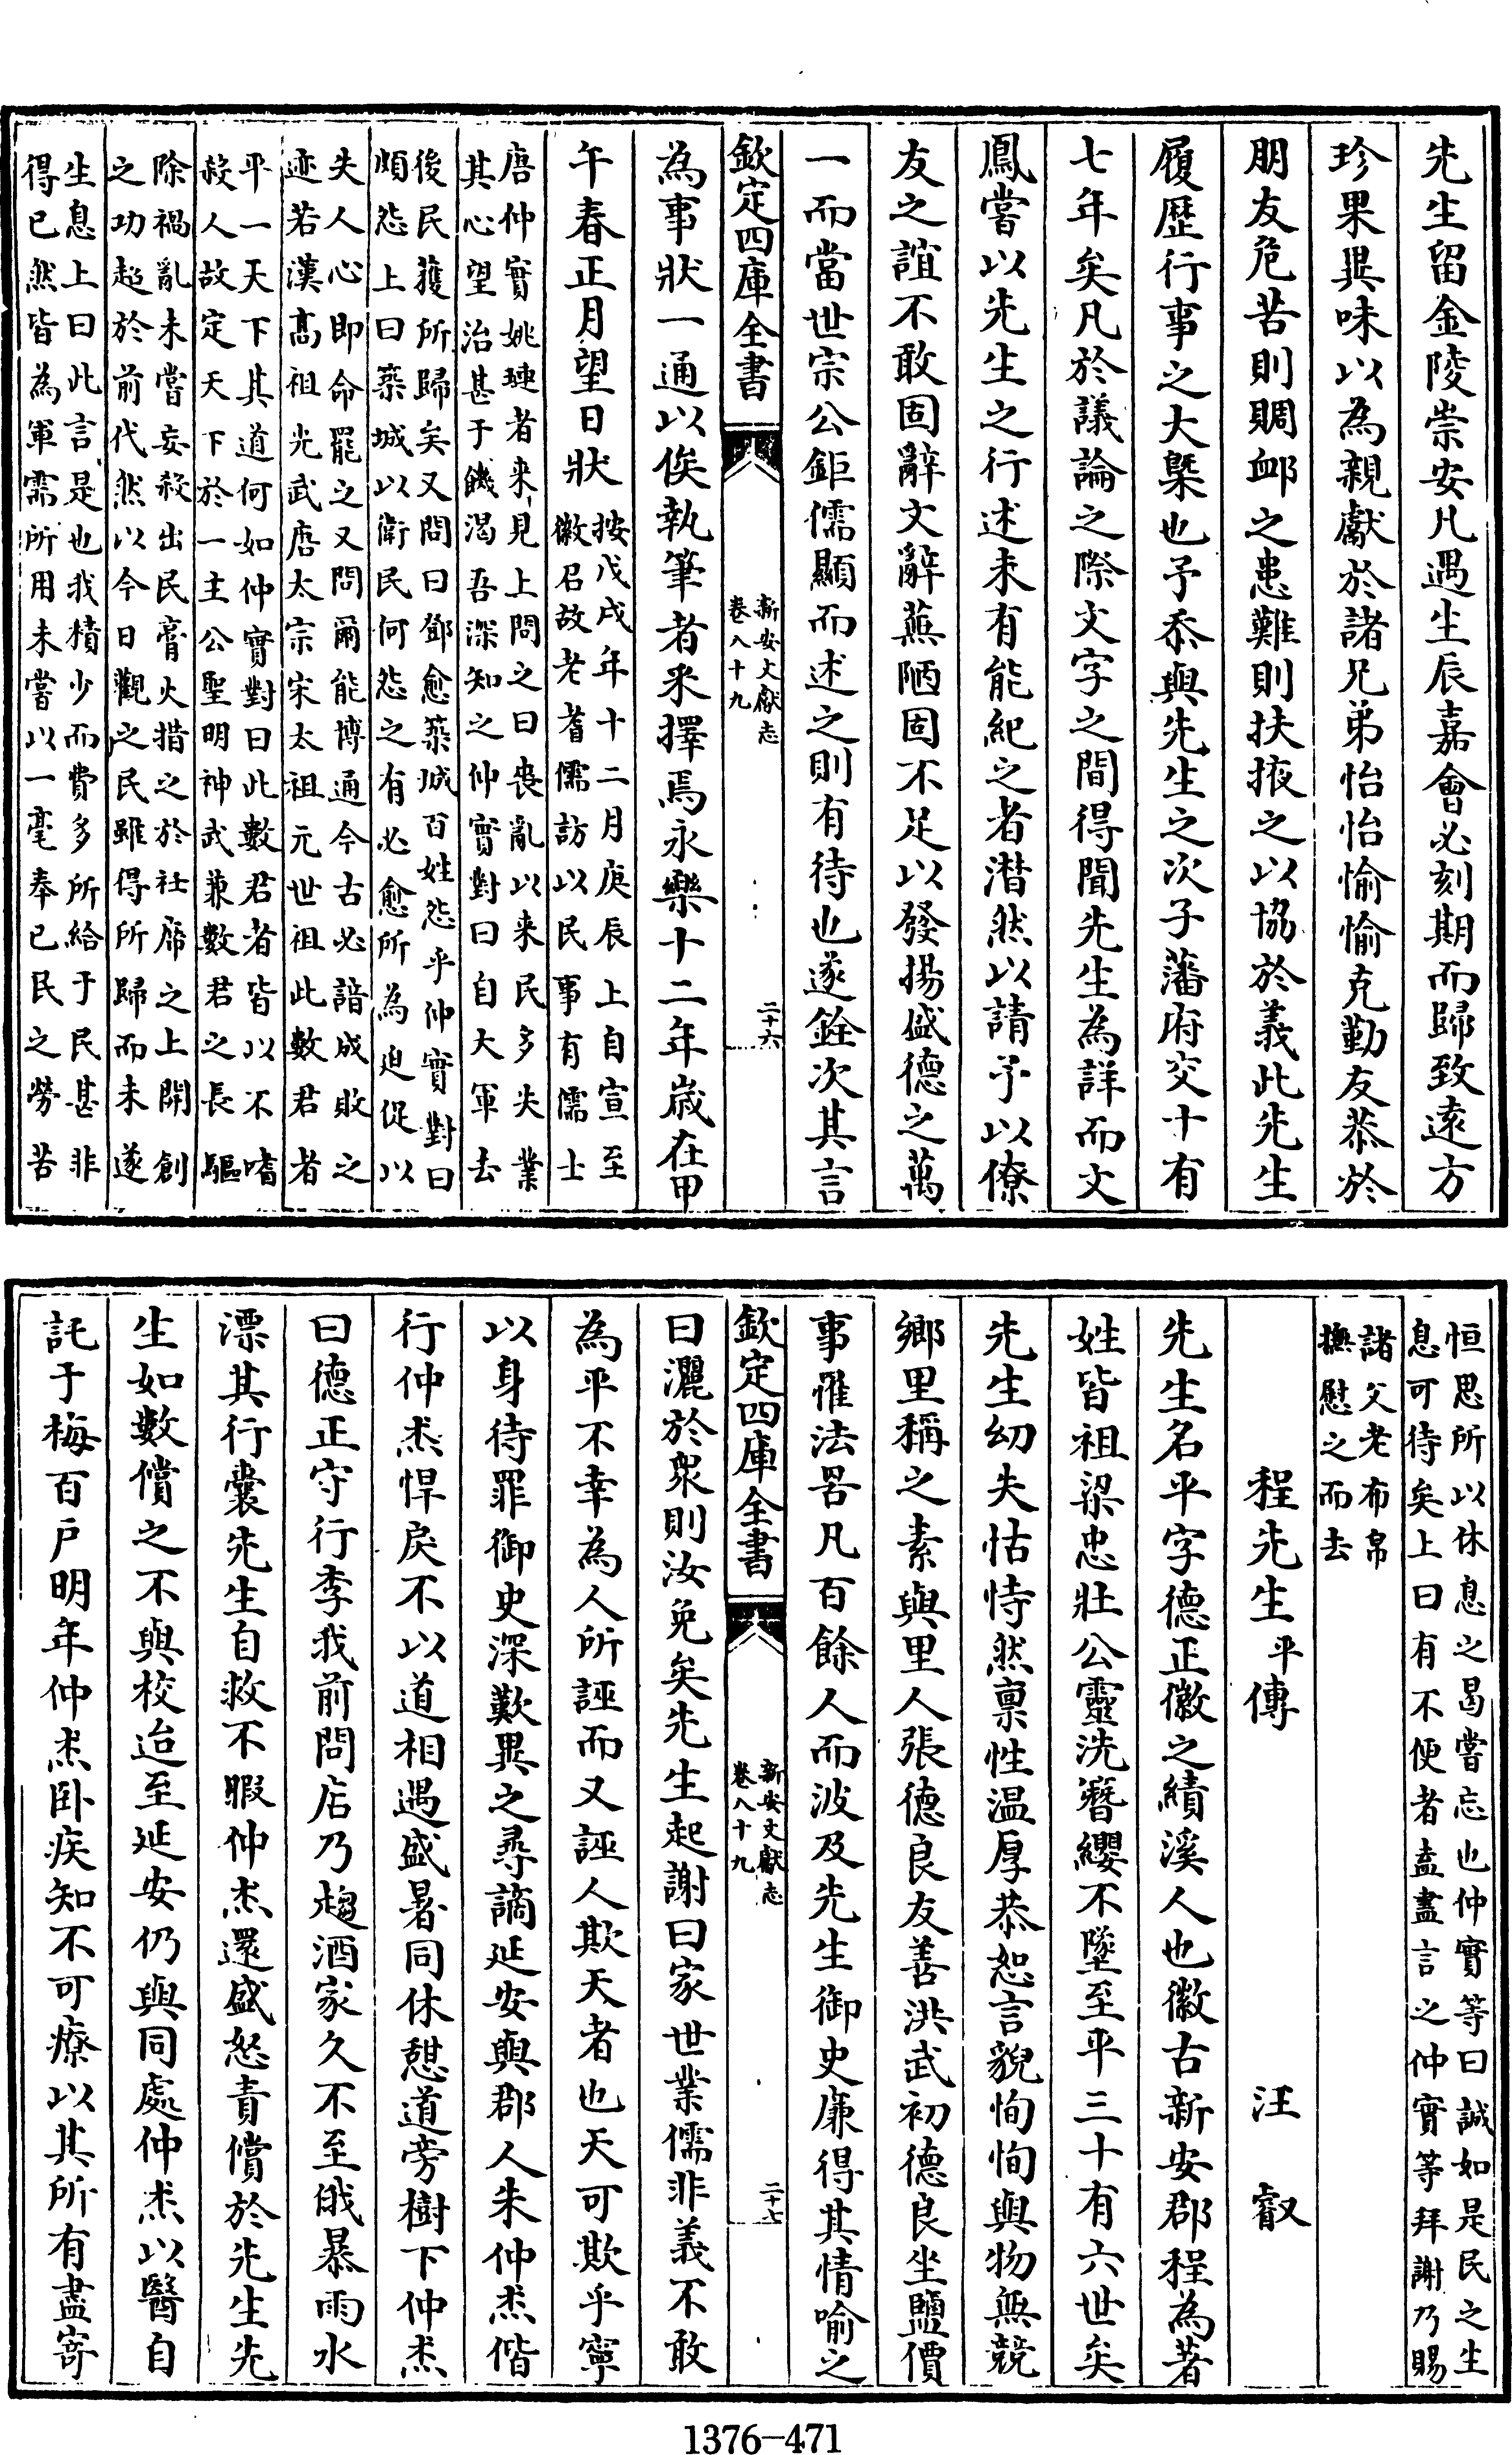 先生留金陵崇安凡遇生辰嘉會必刻期而歸致遠方
珍果異味以為親獻於諸兄弟怡怡愉愉克勤友恭於
朋友危苦則賙䘏之患難則扶掖之以協於義此先生
履歷行事之大槩也予忝與先生之次子藩府交十有
七年矣凡於議論之際文字之間得聞先生為詳而文
鳳嘗以先生之行述未有能紀之者潜然以請予以僚
友之誼不敢固辭文辭蕪陋固不足以發揚盛德之萬
一而當世宗公鉅儒顯而述之則有待也遂銓次其言
欽定四庫全書
新安文獻志
卷八十九
二十六
為事狀一通以俟執筆者采擇焉永樂十二年歲在甲
午春正月望日狀
按戊戌年十二月庚辰上自宣至
徽召故老耆儒訪以民事有儒士
唐仲實姚璉者来見上問之曰喪亂以来民多失業
其心望治甚于饑渴吾深知之仲實對曰自大軍去
後民獲所歸矣又問曰鄧愈築城百姓怨乎仲實對曰
頗怨上曰築城以衛民何怨之有必愈所為迫促以
失人心即命罷之又問爾能博通今古必諳成敗之
迹若漢高祖光武唐太宗宋太祖元世祖此數君者
平一天下其道何如仲實對曰此數君者皆以不嗜
殺人故定天下於一主公聖明神武兼數君之長驅
除禍亂未嘗妄殺出民膏火措之於社席之上開創
之功超於前代然以今日觀之民雖得所歸而未遂
生息上曰此言是也我積少而費多所給于民甚非
得已然皆為軍需所用未嘗以一毫奉已民之勞苦
恒思所以休息之曷嘗忘也仲實等曰誠如是民之生
息可待矣上曰有不便者盍盡言之仲實等拜謝乃賜
諸父老布帛
撫慰之而去
程先生平傳　汪叡
先生名平字德正徽之績溪人也徽古新安郡程為著
姓皆祖梁忠壯公靈洗簪纓不墜至平三十有六世矣
先生幼失怙恃然禀性温厚恭恕言貌恂恂與物無競
鄉里稱之素與里人張德良友善洪武初德良坐鹽價
事罹法咎凡百餘人而波及先生御史廉得其情喻之
欽定四庫全書
新安文獻志
卷八十九
二十七
曰灑於衆則汝免矣先生起謝曰家世業儒非義不敢
為平不幸為人所誣而又誣人欺天者也天可欺乎寧
以身待罪御史深歎異之尋謫延安與郡人朱仲杰偕
行仲杰悍戾不以道相遇盛暑同休憇道旁樹下仲杰
曰德正守行李我前問店乃趨酒家久不至俄暴雨水
漂其行囊先生自救不暇仲杰還盛怒責償於先生先
生如數償之不與校迨至延安仍與同處仲杰以醫自
託于梅百戶明年仲杰卧疾知不可療以其所有盡寄
1376—471